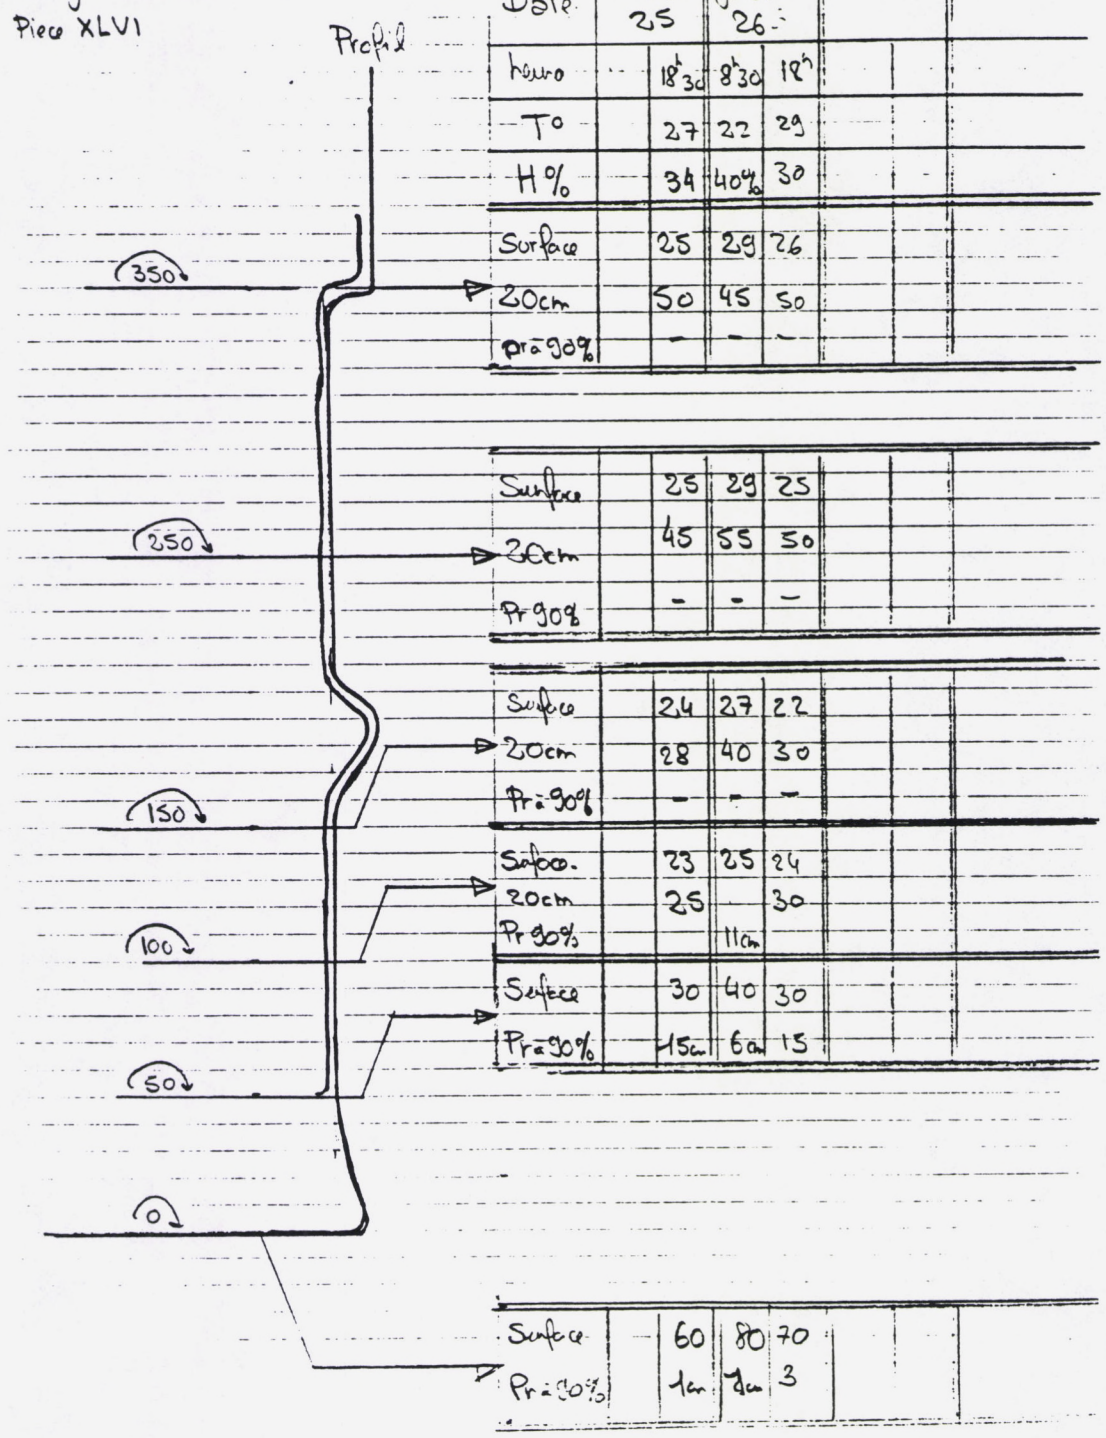 Piece XLVI
Profil
Date
25 26
heure 18h30 8h30 18h
T° 27 22 29
H% 34 40% 30
350
Surface 25 29 26
20cm 50 45 50
pr à 90% - - -
250
Surface 25 29 25
20cm 45 55 50
Pr 90% - - -
150
Surface 24 27 22
20cm 28 40 30
Pr à 90% - - -
100
Surface 23 25 24
20cm 25 30
Pr 90% 11cm
50
Surface 30 40 30
Pr à 90% 15cm 6cm 15
0
Surface 60 80 70
Pr à 90% 1cm 3